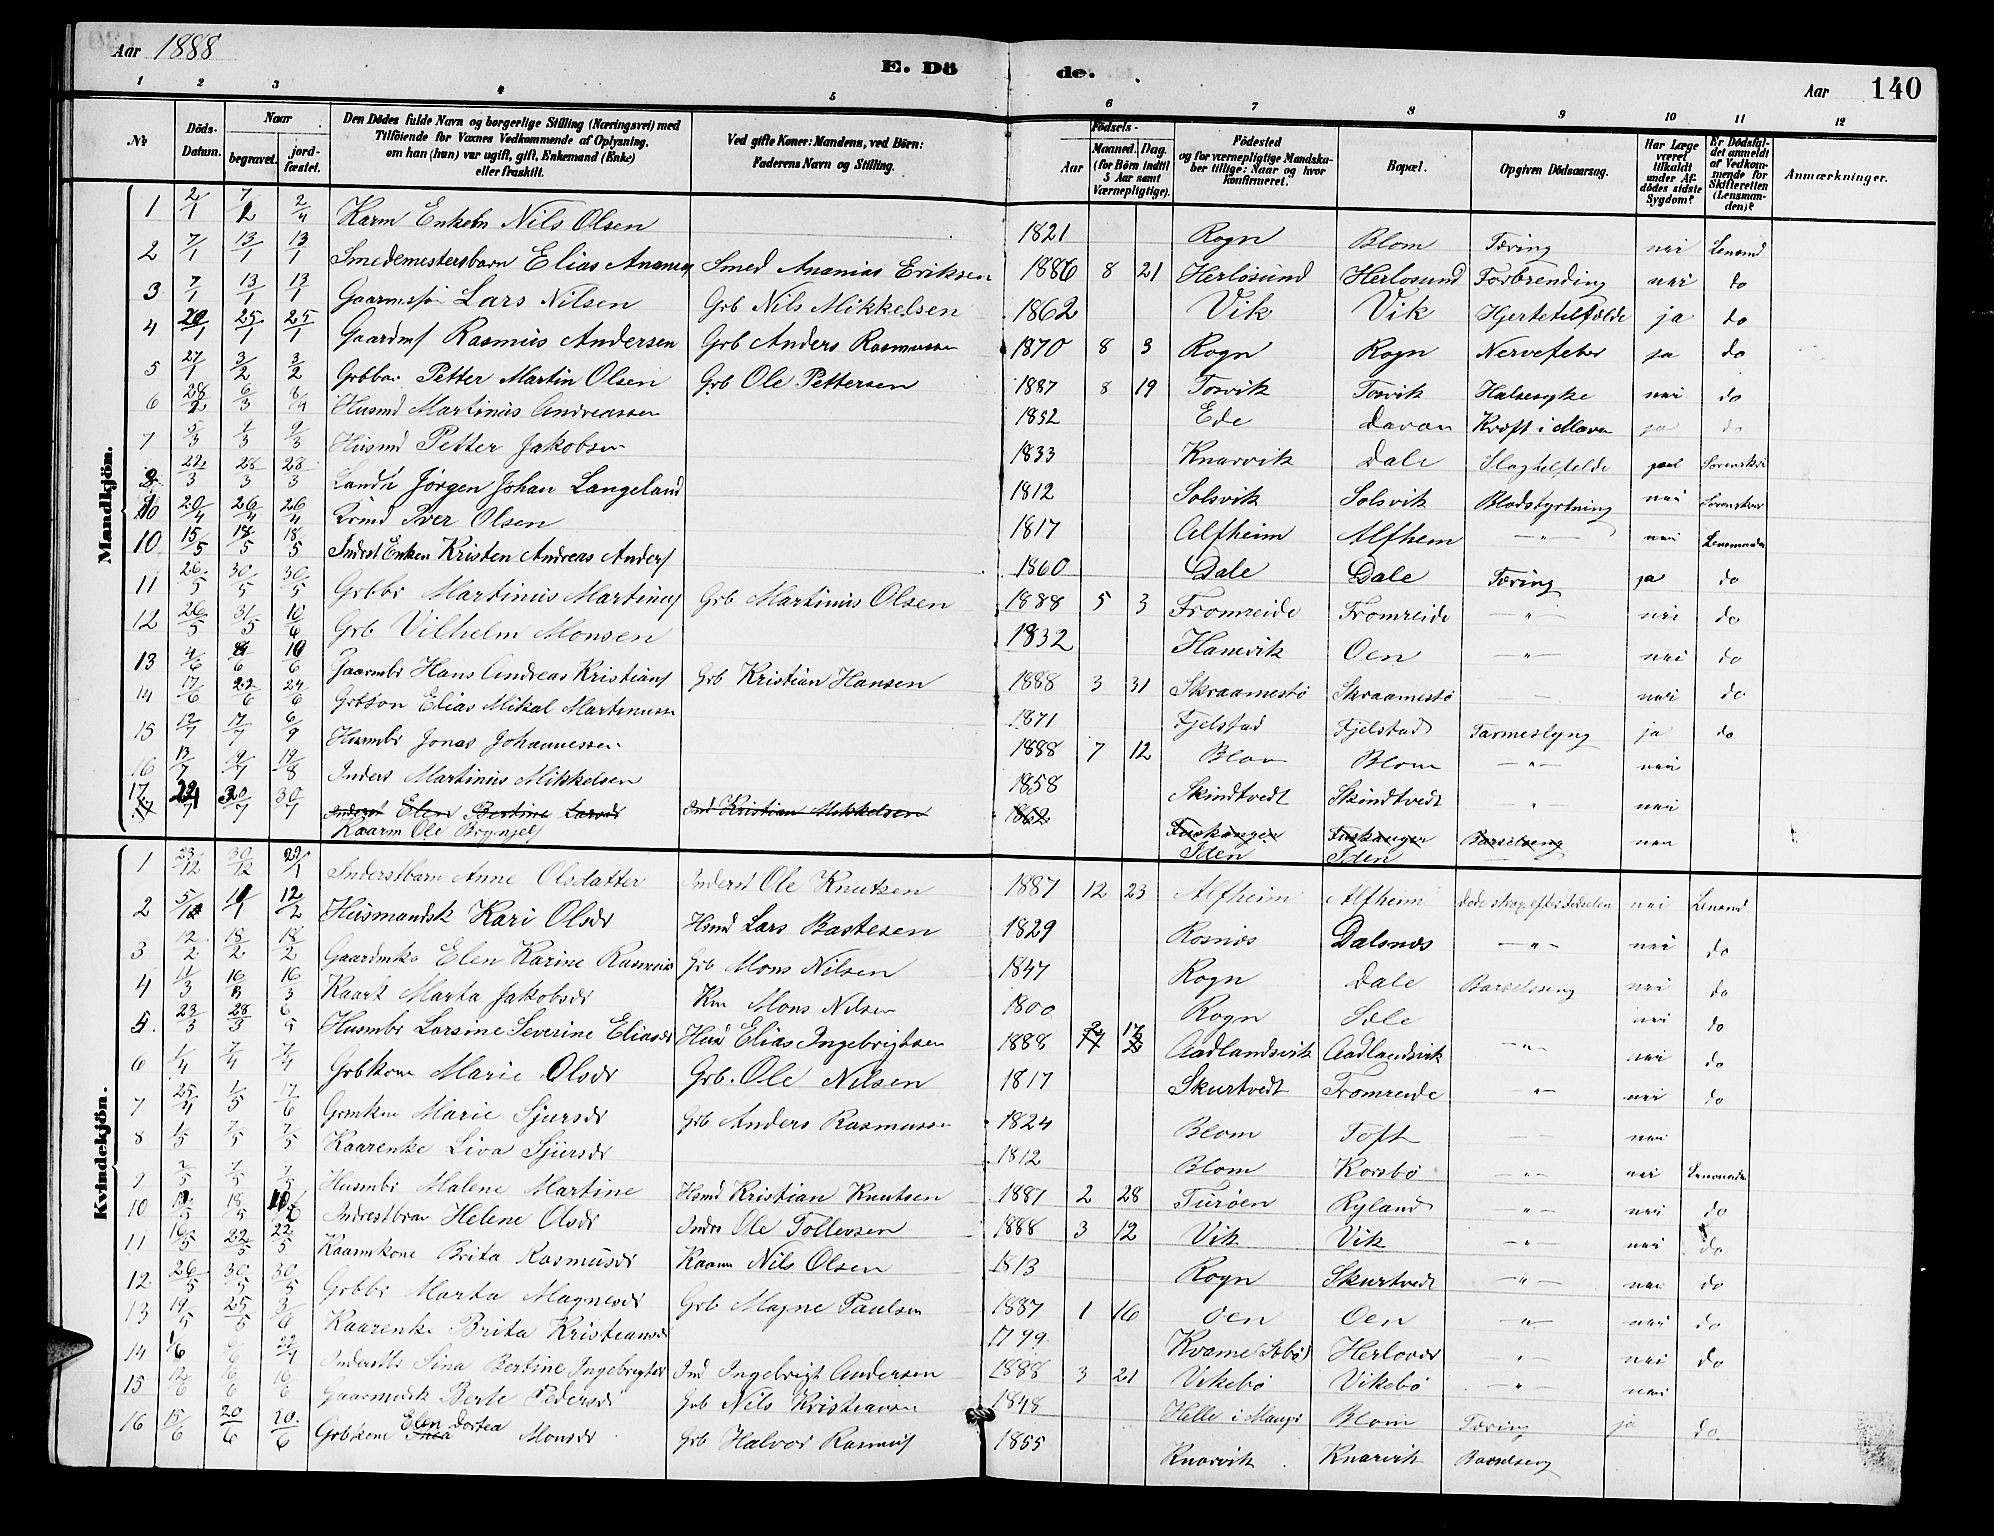 Aar 1888 E. Dö de. Aar 140
1 2 3 4 5 6 7 8 9 10 11 12
No Döds-Datum. Naar begravet. jord-fæstet. Den Dödes fulde Navn og borgerlige Stilling (Næringsvei) med Tilföiende for Voxnes Vedkommende af Oplysning, om han (hun) var ugift, gift, Enkemand (Enke) eller fraskilt. Ved gifte Koner: Mandens, ved Börn: Faderens Navn og Stilling. Födsels- Aar Maaned. Dag. (for Börn indtil 5 Aar samt Værnepligtige). Födested og for værnepligtige Mandskaber tillige: Naar og hvor konfirmeret. Bopæl. Opgiven Dödsaarsag. Har Læge været tilkaldt under Afdödes sidste Sygdom? Er Dödsfaldet anmeldt af Vedkommende for Skifteretten (Lensmanden)? Anmærkninger.
Mandkjön.
1 2/1 7/2 2/4 Karm Enkem Nils Olsen 1821 Rogn Blom Tæring nei Lensmd
2 7/1 13/1 13/1 Smedemestersbarn Elias Ananias Smed Ananias Eriksen 1886 8 21 Herlösund Herlosund Forbrending nei do
3 7/1 13/1 13/1 Gaarmssøn Lars Nilsen Grb Nils Mikkelsen 1862 Vik Vik Hjertetilfælde ja do
4 20/1 25/1 25/1 Gaardms Rasmus Andersen Grb Anders Rasmussen 1870 8 3 Rogn Rogn Nervefeber ja do
5 27/1 3/2 3/2 Grbba Petter Martin Olsen Grb Ole Pettersen 1887 8 19 Torvik Torvik Halsesyke nei do
6 28/2 6/3 8/4 Husmd Martinus Andreassen 1832 Ede Davan Kræft i Maven ja do
7 5/3 9/3 Husmd Petter Jakobsen 1833 Knarvik Dale Slagtilfelde
22/3 28/3 28/3 Jørgen Johan Langeland 1812 Solsvik Solsvik Blodstyrtning nei
20/4 26/4 26/4 Iver Olsen 1817 Alfheim Alfhem —"— nei Lensmanden
10 15/5 18/5 18/5 Inderst Enkem Kristen Andreas Anders 1860 Dale Dale Tæring ja do
11 26/5 30/5 30/5 Grbbr Martinus Martinus Grb Martinus Olsen 1888 5 3 Fromreide Fromreide —"— nei do
12 26/5 31/5 10/6 Grb Vilhelm Monsen 1832 Hanevik Oen —"— nei do
13 4/6 9/6 10/6 Gaarmbr Hans Andreas Kristians Grb Kristian Hansen 1888 3 31 Skraamestö Skraamestö nei do
14 17/6 22/6 24/6 Grbson Elias Mikal Martinussen 1871 Fjelstad Fjelstad Tarmeslyng ja do
15 12/7 17/7 6/9 Husmbr Jonas Johannessen 1888 7 12 Blom Blom —"— nei
16 13/7 19/8 Inders Martinus Mikkelsen 1858 Skindtvedt Skindtvedt " nei
17 24/7 30/7 30/7 Inderst Elen Bertine Larsdr Ind Kristian Mikkelsen 1862 Barselseng nei
Kaarm Ole Brynjels Iden Iden
Kvindekjön.
1 23/12 30/12 22/1 Inderstbarn Anne Olsdatter Inderst Ole Knutsen 1887 12 23 Alfheim Alfheim Döde strax efter Födselen nei Lensmd
2 5/1 10/1 12/2 Husmandsk Kari Olsdr Hsmd Lars Bastesen 1829 Rosnes Dalsnes —"— nei do
3 12/2 18/2 18/2 Gaardmks Elen Karine Rasmus Grb Mons Nilsen 1847 Rogn Dale Barselseng nei do
4 11/3 16/3 16/3 Kaark Marta Jakobsdr Krm Mons Nilsen 1800 Rogn Sæle nei do
5 23/3 28/3 6/5 Husmbr Larsine Severine Eliasdr Hus Elias Ingebrigtsen 1888 2 17 Aadlandsvik Aadlandsvik —"— nei do
6 1/4 7/4 7/4 Grbkone Marie Olsdr Grb. Ole Nilsen 1817 Skurtvedt Fromreide " nei do
7 25/4 1/5 17/6 Grmkone Marie Sjursdr Grb Anders Rasmussen 1824 Blom Toft nei
8 1/5 7/5 7/5 Kaarenke Liva Sjursdr 1812 Blom Korsbö —"— nei Lensmanden
9 2/5 7/5 7/5 Husmbr Malene Martine Hsmd Kristian Knutsen 1887 2 28 Turöen Ryland —"— nei do
10 12/5 18/5 10/6 Inderstbrn Helene Olsdr Inds Ole Tollevsen 1888 3 12 Vik Vik —"— nei do
11 16/5 22/5 22/5 Kaarmkone Brita Rasmusdr Kaarm Nils Olsen 1813 Rogn Skurtvedt —"— nei do
12 26/5 30/5 30/5 Grbbr Marta Magnesdr Grb Magne Paulsen 1887 1 16 Oen Oen —"— nei do
13 19/5 25/5 3/6 Kaarenke Brita Kristiansdr 1799 Kvame Herlover " nei do
14 1/6 Inderstbr Sina Bertine Ingebrigtsdr Ind Ingebrigt Andersen 1888 3 21 Vikebö Vikebö —"— nei
15 12/6 16/6 16/6 Gaarmandsk Berte Pedersdr Grb Nils Kristiansen 1848 Helle i Manger Blom Tæring ja do
16 15/6 20/6 20/6 Grbkone Elen Dortea Monsdr Grb Halvor Rasmus 1855 Knarvik Knarvik Barselseng